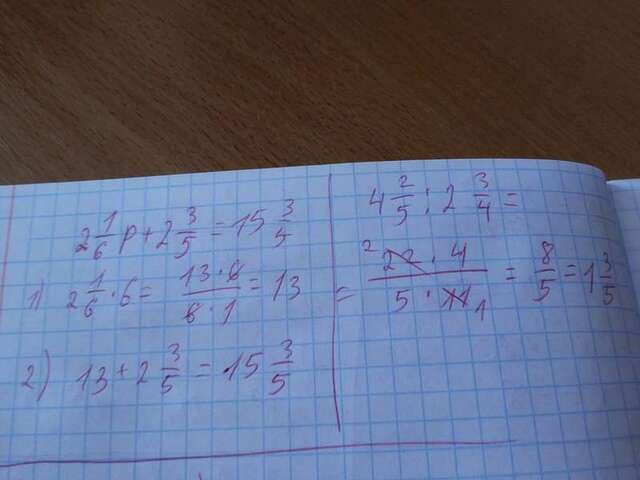 2 1/6 p + 2 3/5 = 15 3/5
1) 2 1/6 · 6 = (13 · 6)/(6 · 1) = 13
2) 13 + 2 3/5 = 15 3/5
4 2/5 : 2 3/4 =
= (22 · 4)/(5 · 11) 2 1 = 8/5 = 1 3/5